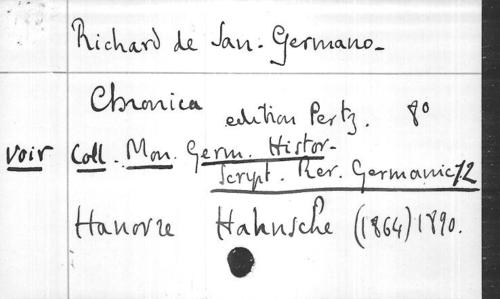 Richard de San-Germano-
Chronica edition Pertz. 8°
voir Coll. Mon. Germ. Histor-
Script. Rer. Germanic 72
Hanovre Hahnsche (1864) 1890.